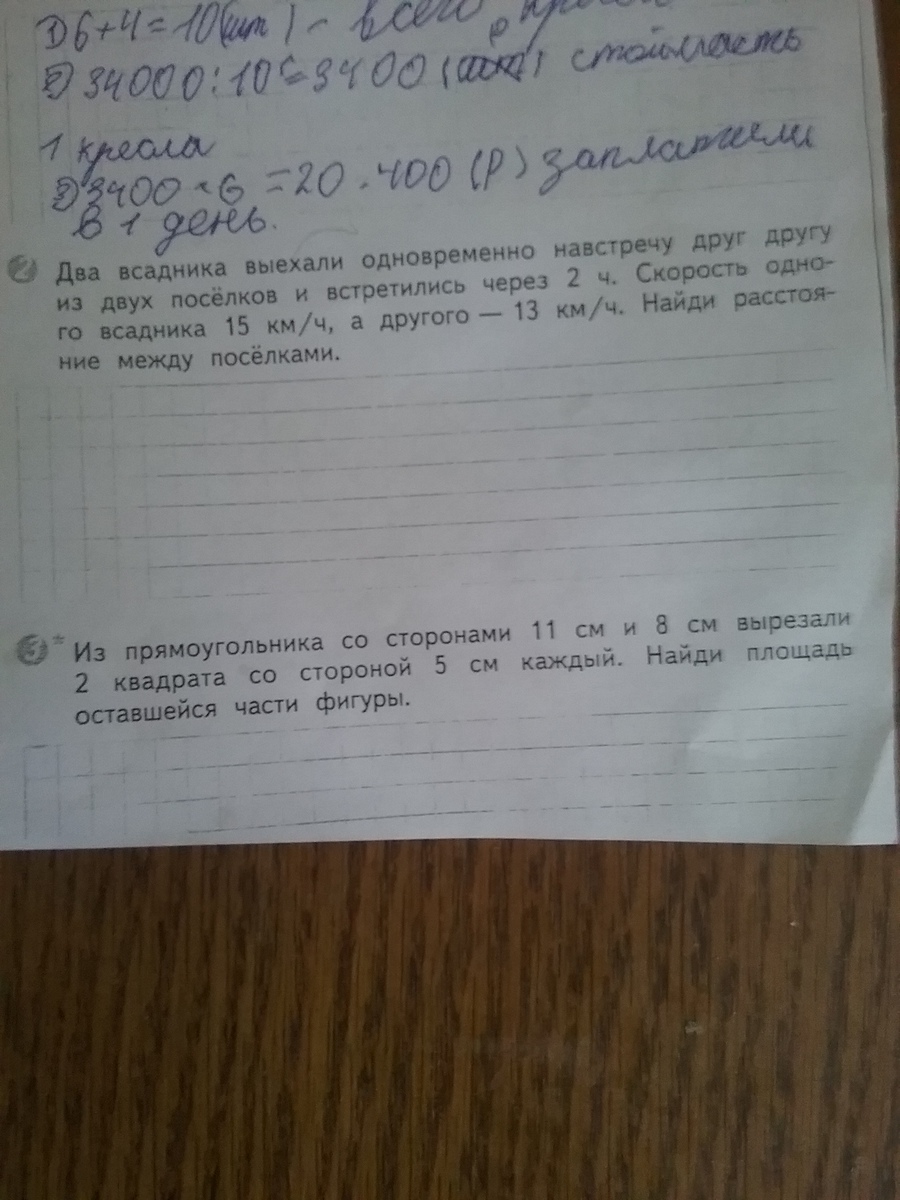 1) 6+4=10 (шт) - всего
2) 34000:10=3400 стоймасть
1 кресла
3) 3400 × 6 = 20.400 (р) заплатили
в 1 день.
2 Два всадника выехали одновременно навстречу друг другу
из двух посёлков и встретились через 2 ч. Скорость одно-
го всадника 15 км/ч, а другого — 13 км/ч. Найди расстоя-
ние между посёлками.
3* Из прямоугольника со сторонами 11 см и 8 см вырезали
2 квадрата со стороной 5 см каждый. Найди площадь
оставшейся части фигуры.